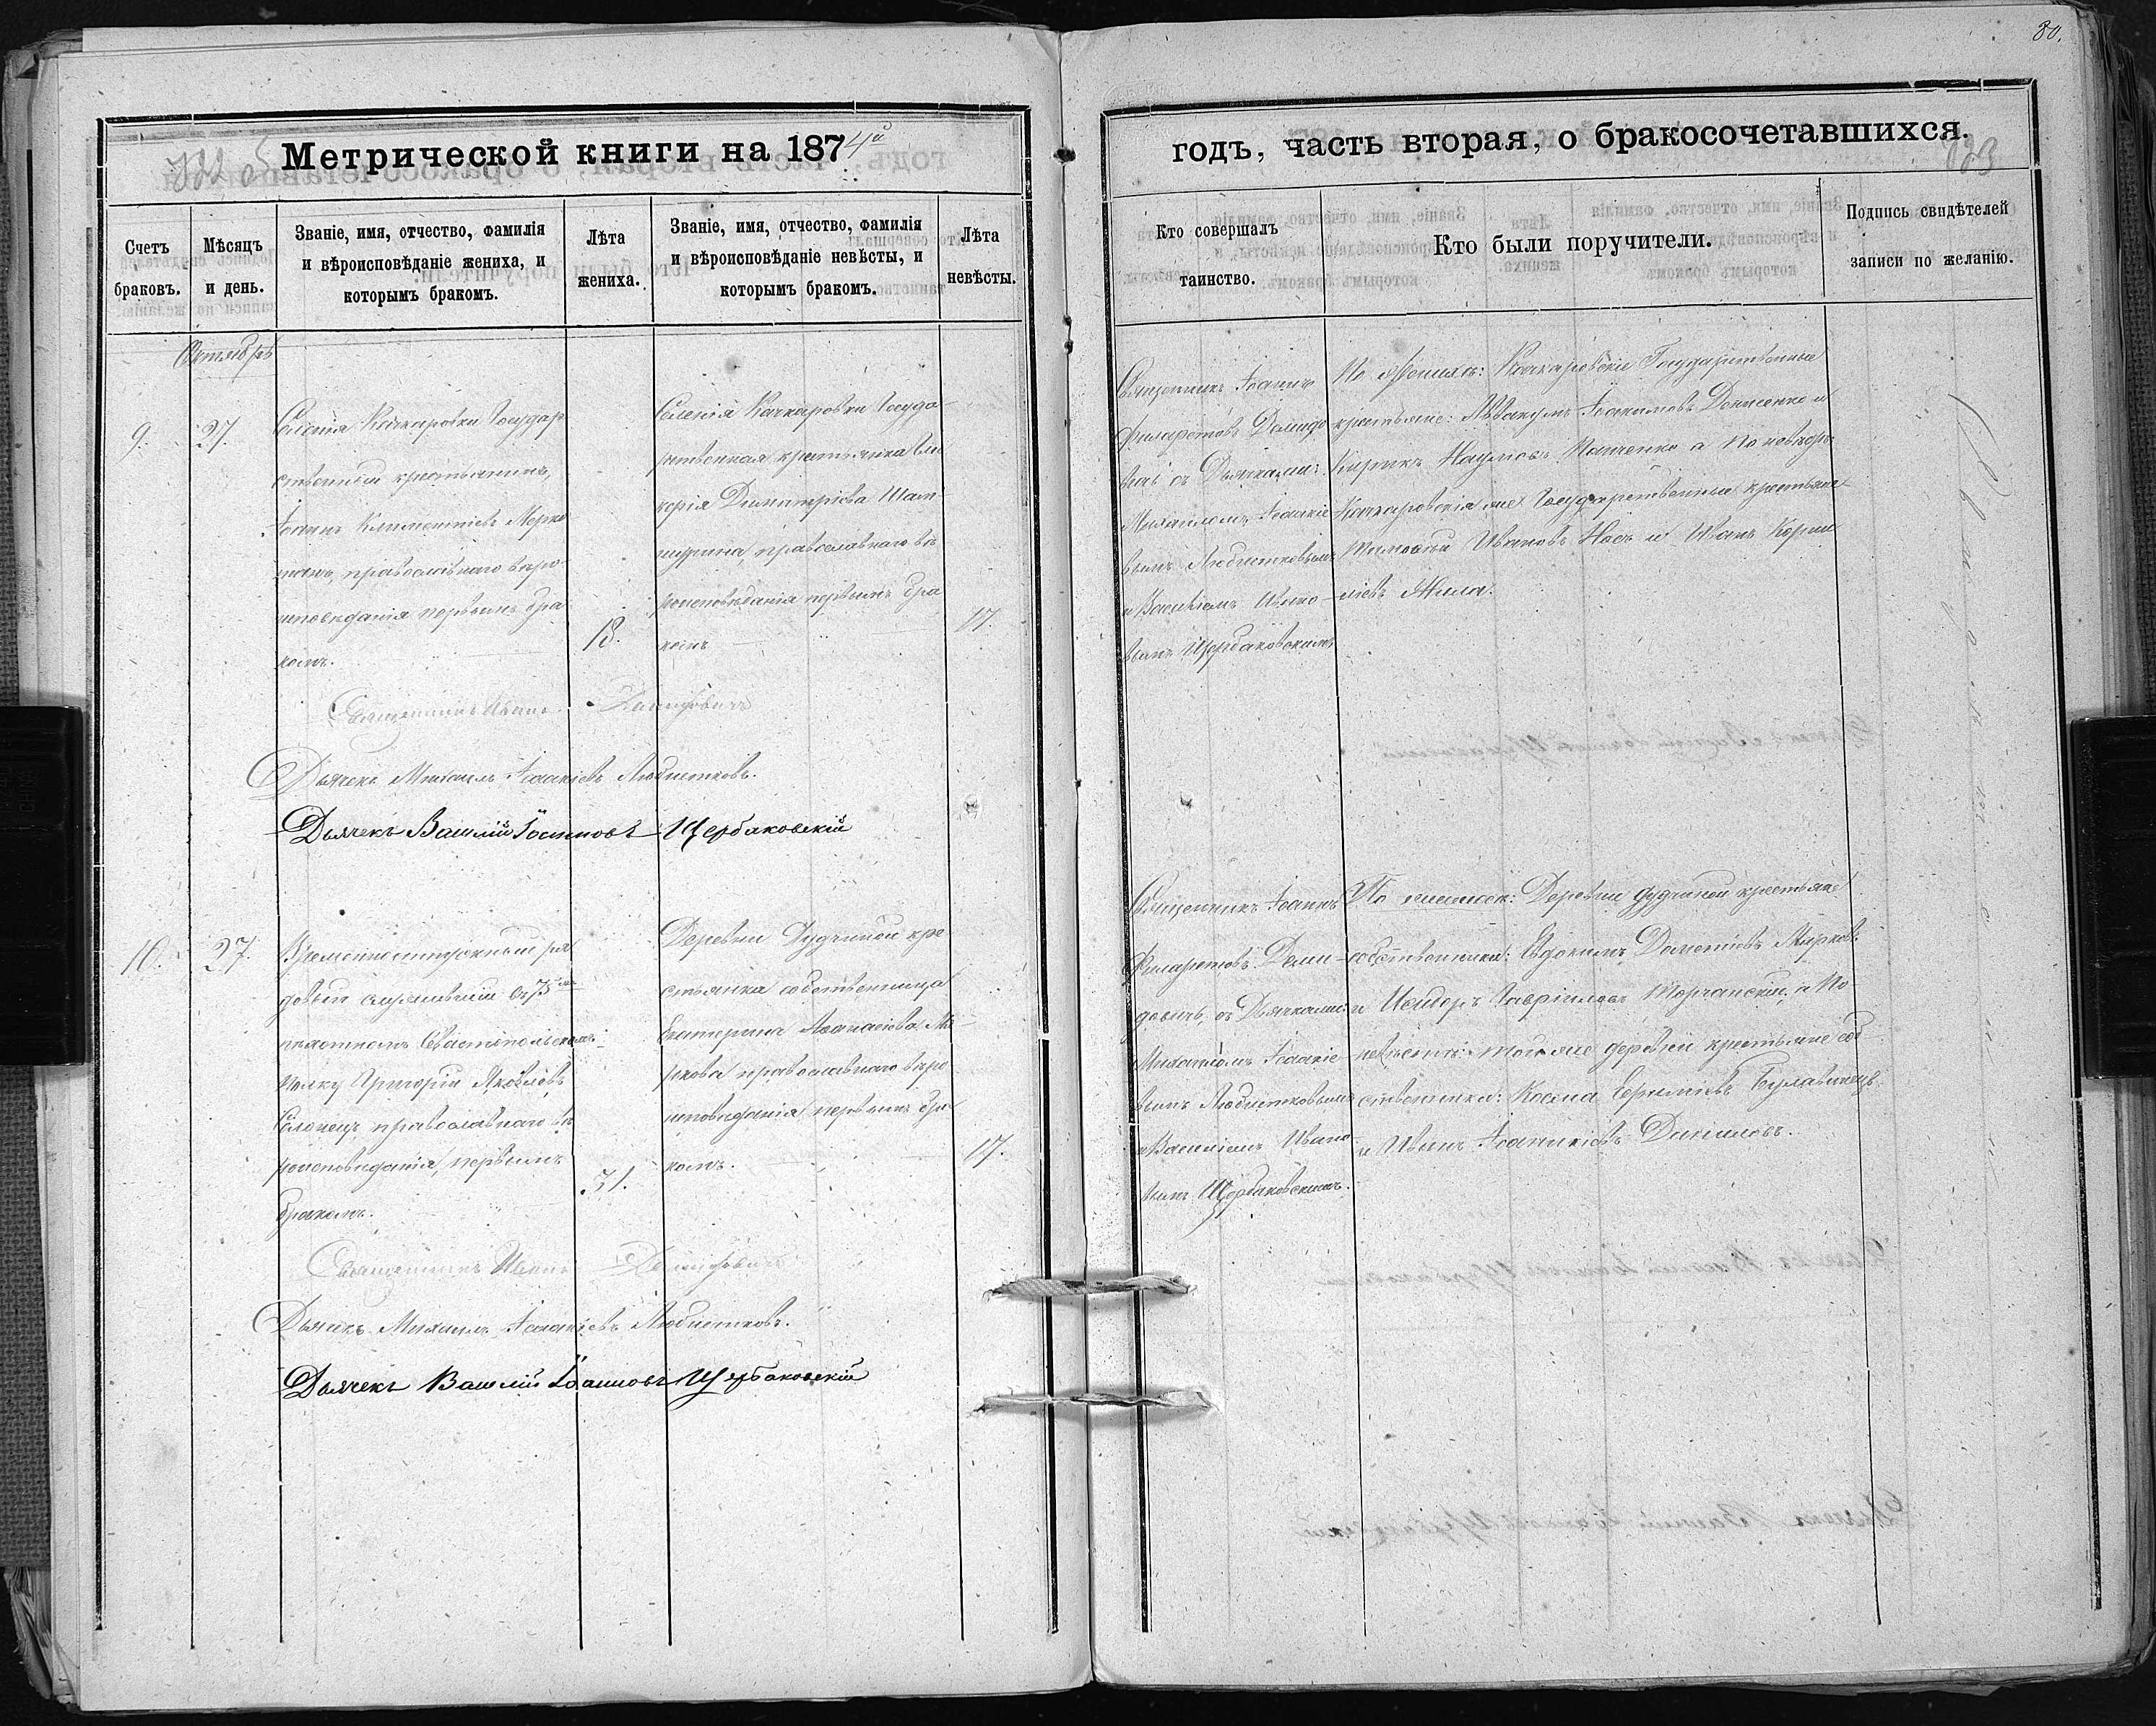 80.
Метрической книги на 1874й
годъ, часть вторая, о бракосочетавшихся.
Счетъ браковъ.
Мѣсяцъ и день.
Званіе, имя, отчество, фамилія и вѣроисповѣданіе жениха, и которымъ бракомъ.
Лѣта жениха.
Званіе, имя, отчество, фамилія и вѣроисповѣданіе невѣсты, и которымъ бракомъ.
Лѣта невѣсты.
Кто совершалъ таинство.
Кто были поручители.
Подпись свидѣтелей записи по желанію.
Октябрь
9.
27.
Селенія Качкаровки Государ
ственный крестьянинъ,
Іоаннъ Климентіевъ
православнаго вѣро-
исповѣданія первымъ бра
комъ.
18.
Селенія Качкаровки Госуда-
рственная крестьянка Гли
керія Димитріева Шам-
шурина, православнаго вѣ
роисповѣданія первымъ бра
комъ
17.
Священникъ Іоаннъ
Филаретовъ Демидо
вичъ съ Дьячками:
Михаиломъ Іоакіе
вымъ Любистковымъ
и Василіемъ Ивано-
вымъ Щербаковскимъ
По женихѣ: Качкаровскіе Государственные
крестьяне: Аввакумъ Іоакимовъ Денисенко и
Кирикъ Наумовъ а по невѣстѣ:
Качкаровскія же Государственные крестьяне
Тимофей Ивановъ Носъ и Иванъ Корни
ліевъ Жила.
Священникъ Иванъ Демидовичъ
Дьячекъ Михаилъ Іоакіевъ Любистковъ.
Дьячекъ Василій Іоанновъ Щербаковскій
10.
27.
Временноотпускный ря
довый служившій въ 75мъ
пѣхотномъ Севастопольскомъ
полку Григорій Яковлевъ
православнаго вѣ
роисповѣданія, первымъ
бракомъ.
31.
Деревни Дудчиной кре
стьянка собственница
Екатерина Аѳанасіева Ма-
ркова православнаго вѣро
исповѣданія первымъ бра
комъ.
17.
Священникъ Іоаннъ
Филаретовъ Деми-
довичъ, съ Дьячками:
Михаиломъ Іоакіе
вымъ Любистковымъ
и Василіемъ Ивано
вымъ Щербаковскимъ.
По женихѣ: Деревни Дудчиной крестьяне
собственники: Евдокимъ Дометіевъ Марковъ
и Исидоръ Гавріиловъ Торчанскій, а по
невѣстѣ: той же деревни крестьяне соб-
ственники: Косма Еремѣевъ Булавинецъ
и Иванъ Іоанникіевъ Даниловъ.
Священникъ Иванъ Демидовичъ
Дьячекъ Михаилъ Іоакіевъ Любистковъ.
Дьячекъ Василій Іоанновъ Щербаковскій